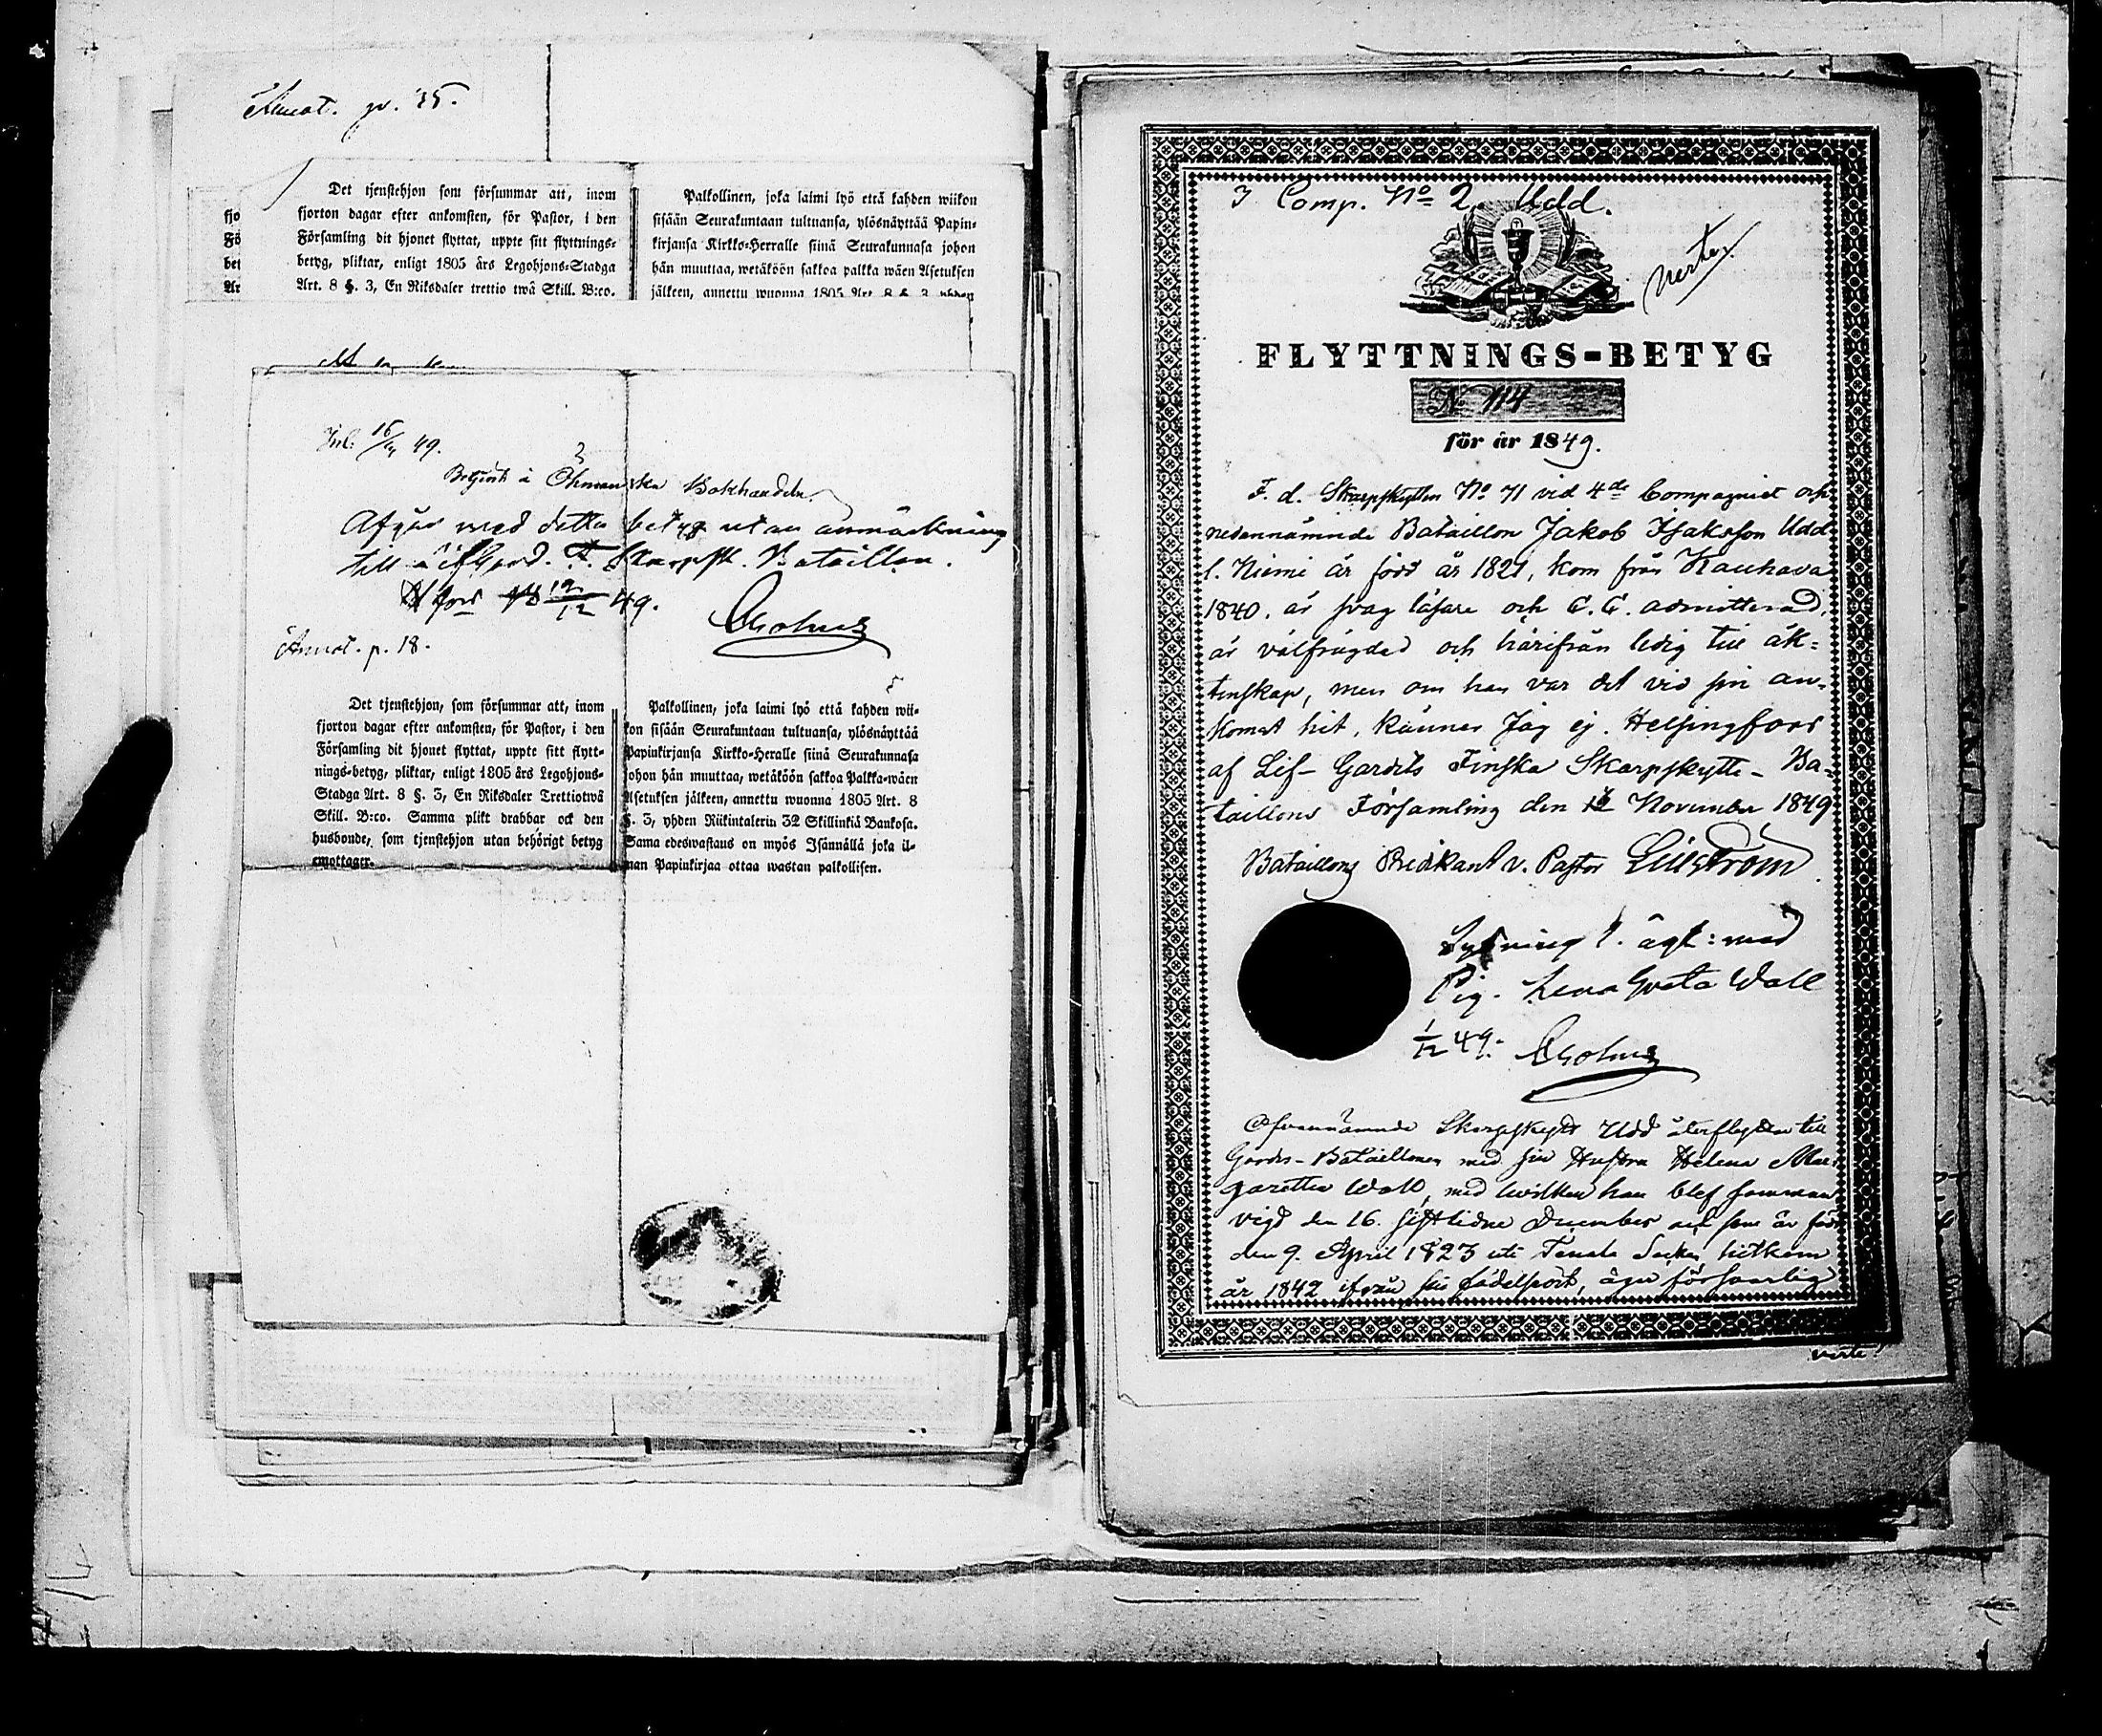 Annot. p. 35.
Det tjenstehjon som försummar att, inom
fjorton dagar efter ankomsten, för Pastor, i den
Församling dit hjonet flyttat, uppte sitt flyttnings-
betyg, pliktar, enligt 1805 års Legohjons-Stadga
Art. 8 §. 3, En Riksdaler trettio twå Skill. B:co.
fjo
Fö
bet
Ar
Palkollinen, joka laimi lyö että kahden wiikon
sisään Seurakuntaan tultuansa, ylösnäyttää Papin-
kirjansa Kirkko-Herralle siinä Seurakunnasa johon
hän muuttaa, wetäköön sakkoa palkka wäen Asetuksen
jälkeen, annettu wuonna 1805 Art. 8 §. 3 yhden
49.
Öhmanska Bokhandeln
Afgår med detta betyg utan anmärkning
till Lifgard. F. Skarpsk. Bataillon.
H:fors 19/12 49.
Annot. p. 18.
Det tjenstehjon, som försummar att, inom
fjorton dagar efter ankomsten, för Pastor, i den
Församling dit hjonet flyttat, uppte sitt flytt-
nings-betyg, pliktar, enligt 1805 års Legohjons-
Stadga Art. 8 §. 3, En Riksdaler Trettiotwå
Skill. B:co. Samma plikt drabbar ock den
husbonde, som tjenstehjon utan behörigt betyg
emottager.
Palkollinen, joka laimi lyö että kahden wii-
kon sisään Seurakuntaan tultuansa, ylösnäyttää
Papinkirjansa Kirkko-Heralle siinä Seurakunnasa
johon hän muuttaa, wetäköön sakkoa Palkka-wäen
Asetuksen jälkeen, annettu wuonna 1805 Art. 8
§. 3, yhden Riikintalerin 32 Skillinkiä Bankosa.
Sama edeswastaus on myös Isännällä joka il-
man Papinkirjaa ottaa wastan palkollisen.
3 Comp. No 2. Udd.
verte
FLYTTNINGS-BETYG
No 114
för år 1849.
F. d. Skarpskytten No 71 vid 4de Compagniet och
nedannämnde Bataillon Jakob Isaksson Udd
l. Niemi är född år 1821, kom från Kauhava
1840, är svag läsare och C. C. admitterad,
är välfrägdad och härifrån ledig till äk-
tenskap, men om han var det vid sin an-
komst hit, känner jag ej. Helsingfors
af Lif-Gardets Finska Skarpskytte-Ba-
taillons Församling den November 1849
Bataillons Predikant v. Pastor Lillström
Lysning t. ägt: med
Pig. Lena Greta Wall
1/12 49.
Ofvannämnde Skarpskytt Udd återflyttar till
Gardes-Bataillonen med sin Hustru Helena Mar-
garetha Wall, med hvilken han blef samman-
vigd den 16. sistlidne December och som är född
den 9. April 1823 uti Tenala Socken, hitkom
år 1842 ifrån sin födelseort, äger försvarlig
verte!